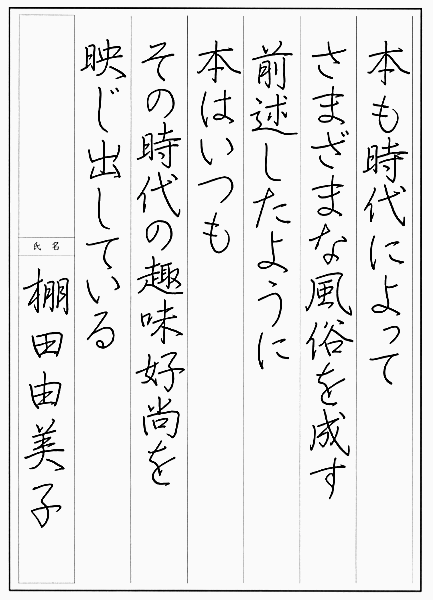 本も時代によって
さまざまな風俗を成す
前述したように
本はいつも
その時代の趣味好尚を
映じ出している
氏名
棚田由美子